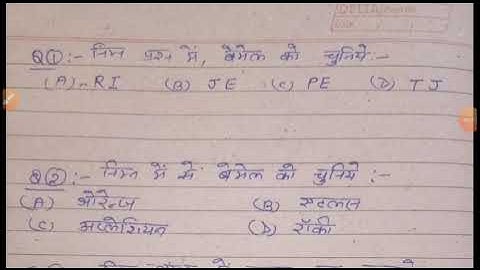 Q①:- निम्न प्रश्न में, बेमेल को चुनिये:-
(A) RI (B) JE (C) PE (D) TJ
Q②:- निम्न में से बेमेल को चुनिये :-
(A) ओरेन्ज (B) एटलस
(C) अप्लेशियन (D) रॉकी